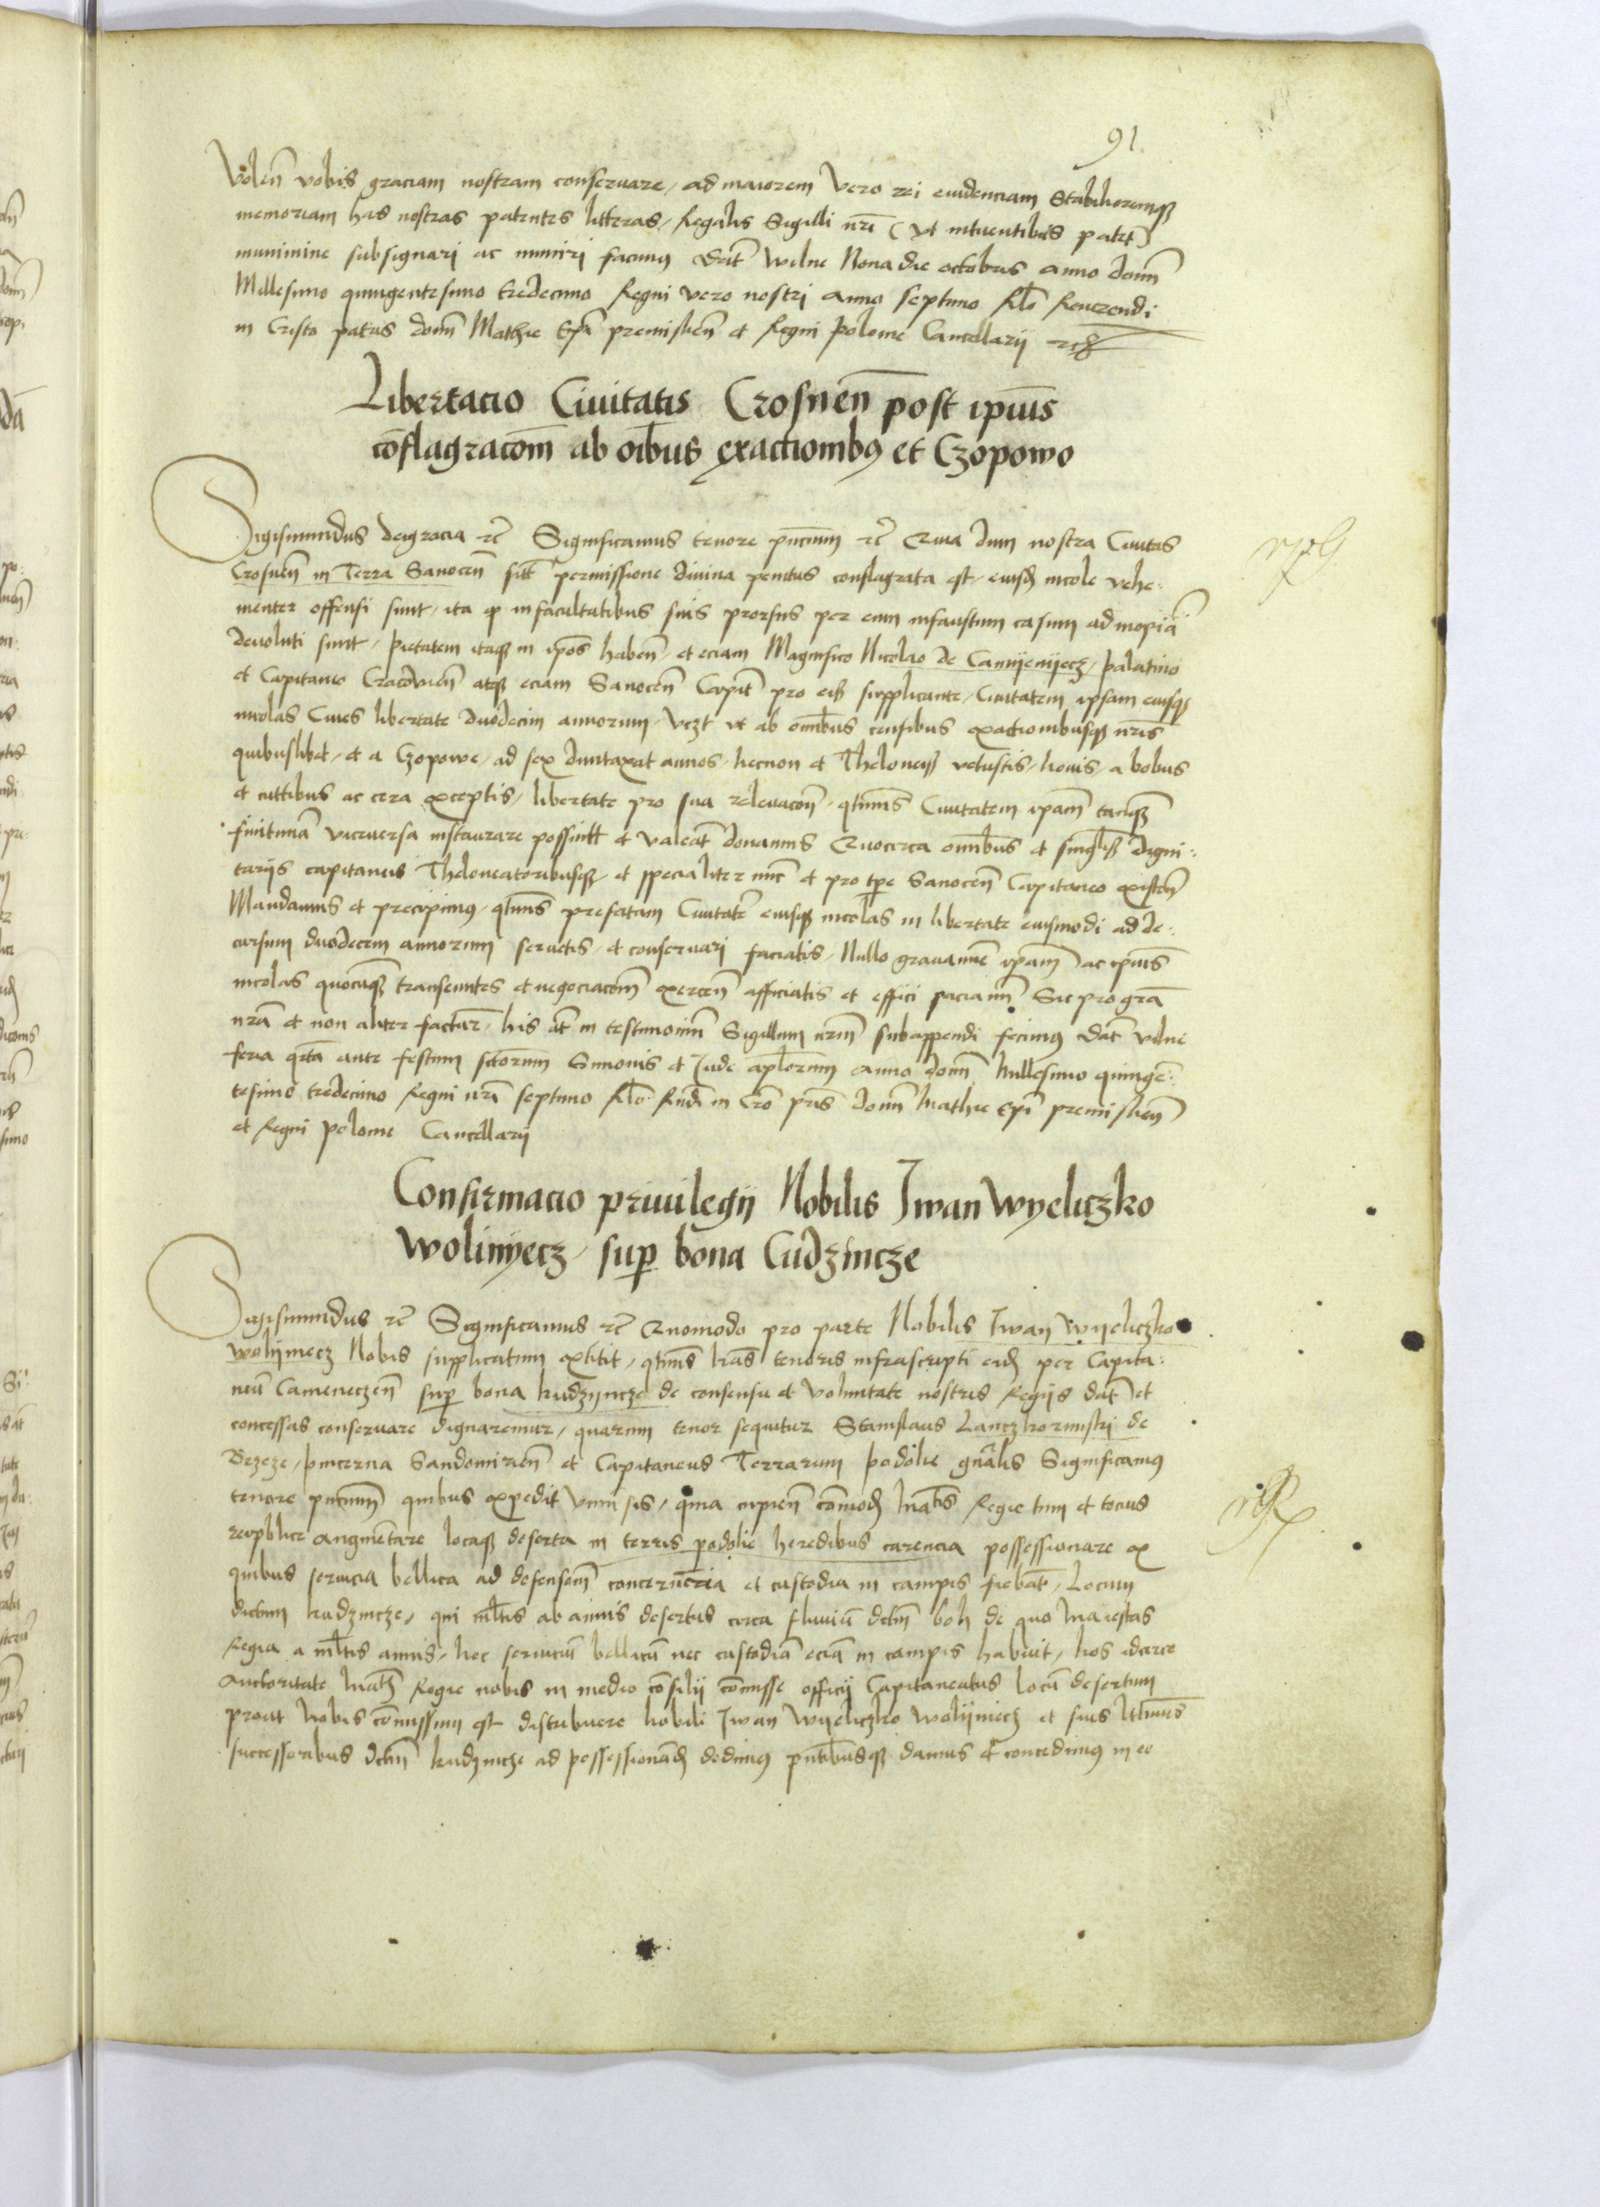 91
Volen̄ vobis graciam nostram conseruare, ad maiorem vero rei euidenciam stabilioremqꝫ
memoriam has nostras patentes litteras, Regalis Sigilli nr̄i (vt intuentibus patet)
munimine subsignari ac muniri facimus Dat̄ Wilne Nona die octobris anno domī
Millesimo quingentesimo tredecimo Regni vero nostri anno septimo Rl̄o Reuerendi
in Cristo patris domī Mathie Ep̄i premislien̄ et Regni Polonie Cancellarij
Libertacio Ciuitatis Crosnen̄ post ipīus
cōflagracōm ab oībus exactionibꝯ et Czopowo
Sigismundus deigracia ꝛc̄ Significamus tenore pn̄cium ꝛc̄ Quia dum nostra Ciuitas
Crosnen̄ in Terra Sanocen̄ sit̄ permissione diuina penitus conflagrata est, eiusdꝫ incole vehe-
menter offensi sunt, ita ꝙ in facultatibus suis prorsus per eum infaustum casum ad inopiā
deuoluti sunt, pietatem itaqꝫ in ip̄os haben̄, et eciam Magnifico Nicolao de Camyenyecz, palatino
et Capitaneo Cracouien̄ atqꝫ eciam Sanocen̄ Capit̄ pro eis supplicante, Ciuitatem ipsam eiusqꝫ
incolas Ciues libertate duodecim annorum, vczt vt ab omībus censibus exactionibusqꝫ nr̄is
quibuslibet, et a Czopowe, ad sex duntaxat annos, necnon et Theloneis vetustis, nouis, a bobus
et cuttibus ac cera exceptis, libertate pro sua releuacōn, qt̄inus Ciuitatem ip̄am tanqꝫ
finitimā viceuersa instaurare possint et valeāt donamus Quocirca omībus et singl̄is digni-
tarijs capitaneis Theloneatoribusqꝫ et specialiter nūc et pro tꝑe Sanocen̄ Capitaneo existen̄
Mandamus et precipimus, qt̄inus prefatam Ciuitatē eiusqꝫ incolas in libertate eiusmodi ad de-
cursum duodecem annorum seruetis, et conseruari faciatis, Nullo grauamine ip̄am ac ipīus
incolas quocūqꝫ transeuntes et negociacōm exercen̄ afficiatis et effici faciatis Sic pro grā
nr̄a et non aliter factur̄, his āt in testimonium Sigillum nr̄m subappendi fecimus Dat̄ vilne
feria qr̄ta ante festum sctōrum Simonis et Jude apl̄orum anno domī Millesimo quingē-
tesimo tredecimo Regni nr̄i septimo Rl̄o Rndi in Cro pr̄is domī Mathie Ep̄i premislien̄
et Regni Polonie Cancellarij
Confirmacio priuilegij Nobilis Iwan Wyeliczko
wolinyecz, suꝑ bona Cudzincze
Sigismundus ꝛc̄ Significamus ꝛc̄ Quomodo pro parte Nobilis Iwan Wyeliczko
wolyniecz Nobis supplicatum extitit, qt̄inus lr̄as tenoris infrascripti eidꝫ per Capita-
neū Cameneczen̄ suꝑ bona kudzyncze de consensu et voluntate nostris Regijs dat̄ et
concessas conseruare dignaremur, quarum tenor sequitur Stanislaus Lanczkorunski de
Brzeze, pincerna Sandomirien̄ et Capitaneus Terrarum podolie gn̄alis Significamus
tenore pn̄cium quibus expedit vniuersis, quia cupien̄ cōmodꝫ Ma̅tis Regie tum et tocius
reipublice augmentare locaqꝫ deserta in terris podolie heredibus carencia possessionare ex
quibus seruicia bellica ad defensionē concernencia et custodia in campis fiebāt, Locum
dictum kudzincze, qui ml̄tis ab annis desertus circa fluuiū dctm̄ boh de quo Maiestas
Regia a ml̄tis annis, nec seruiciū bellicū nec custodiā eciā in campis habuit, nos idcirco
auctoritate Ma̅tis Regie nobis in medio cōsilij cōmisse officij Capitaneatus locū desertum
prout nobis cōmissum est distribuere Nobili Iwan Wyeliczko wolijniecz et suis l̄timis
successoribus dctm̄ kudzincze ad possessionandꝫ dedimus pn̄tibusqꝫ damus et concedimus in eo